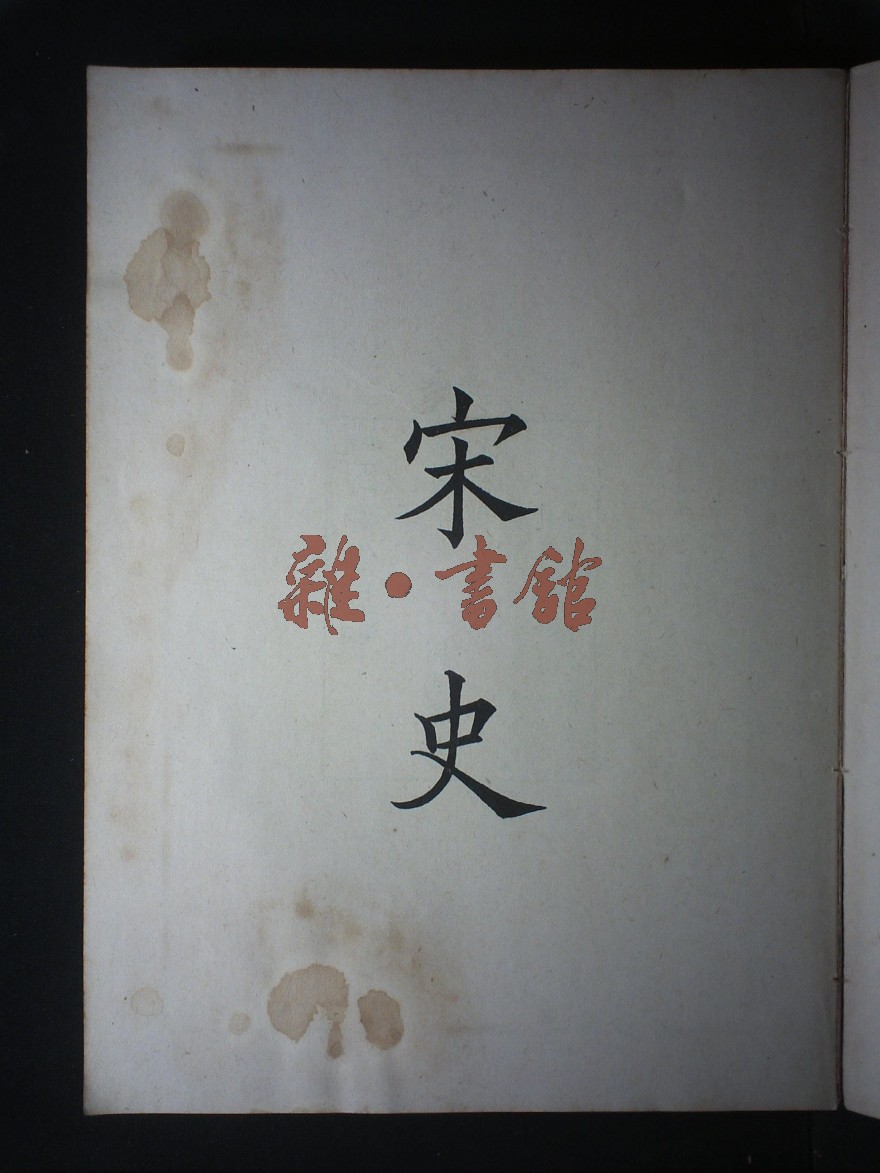 宋
雜·書館
史